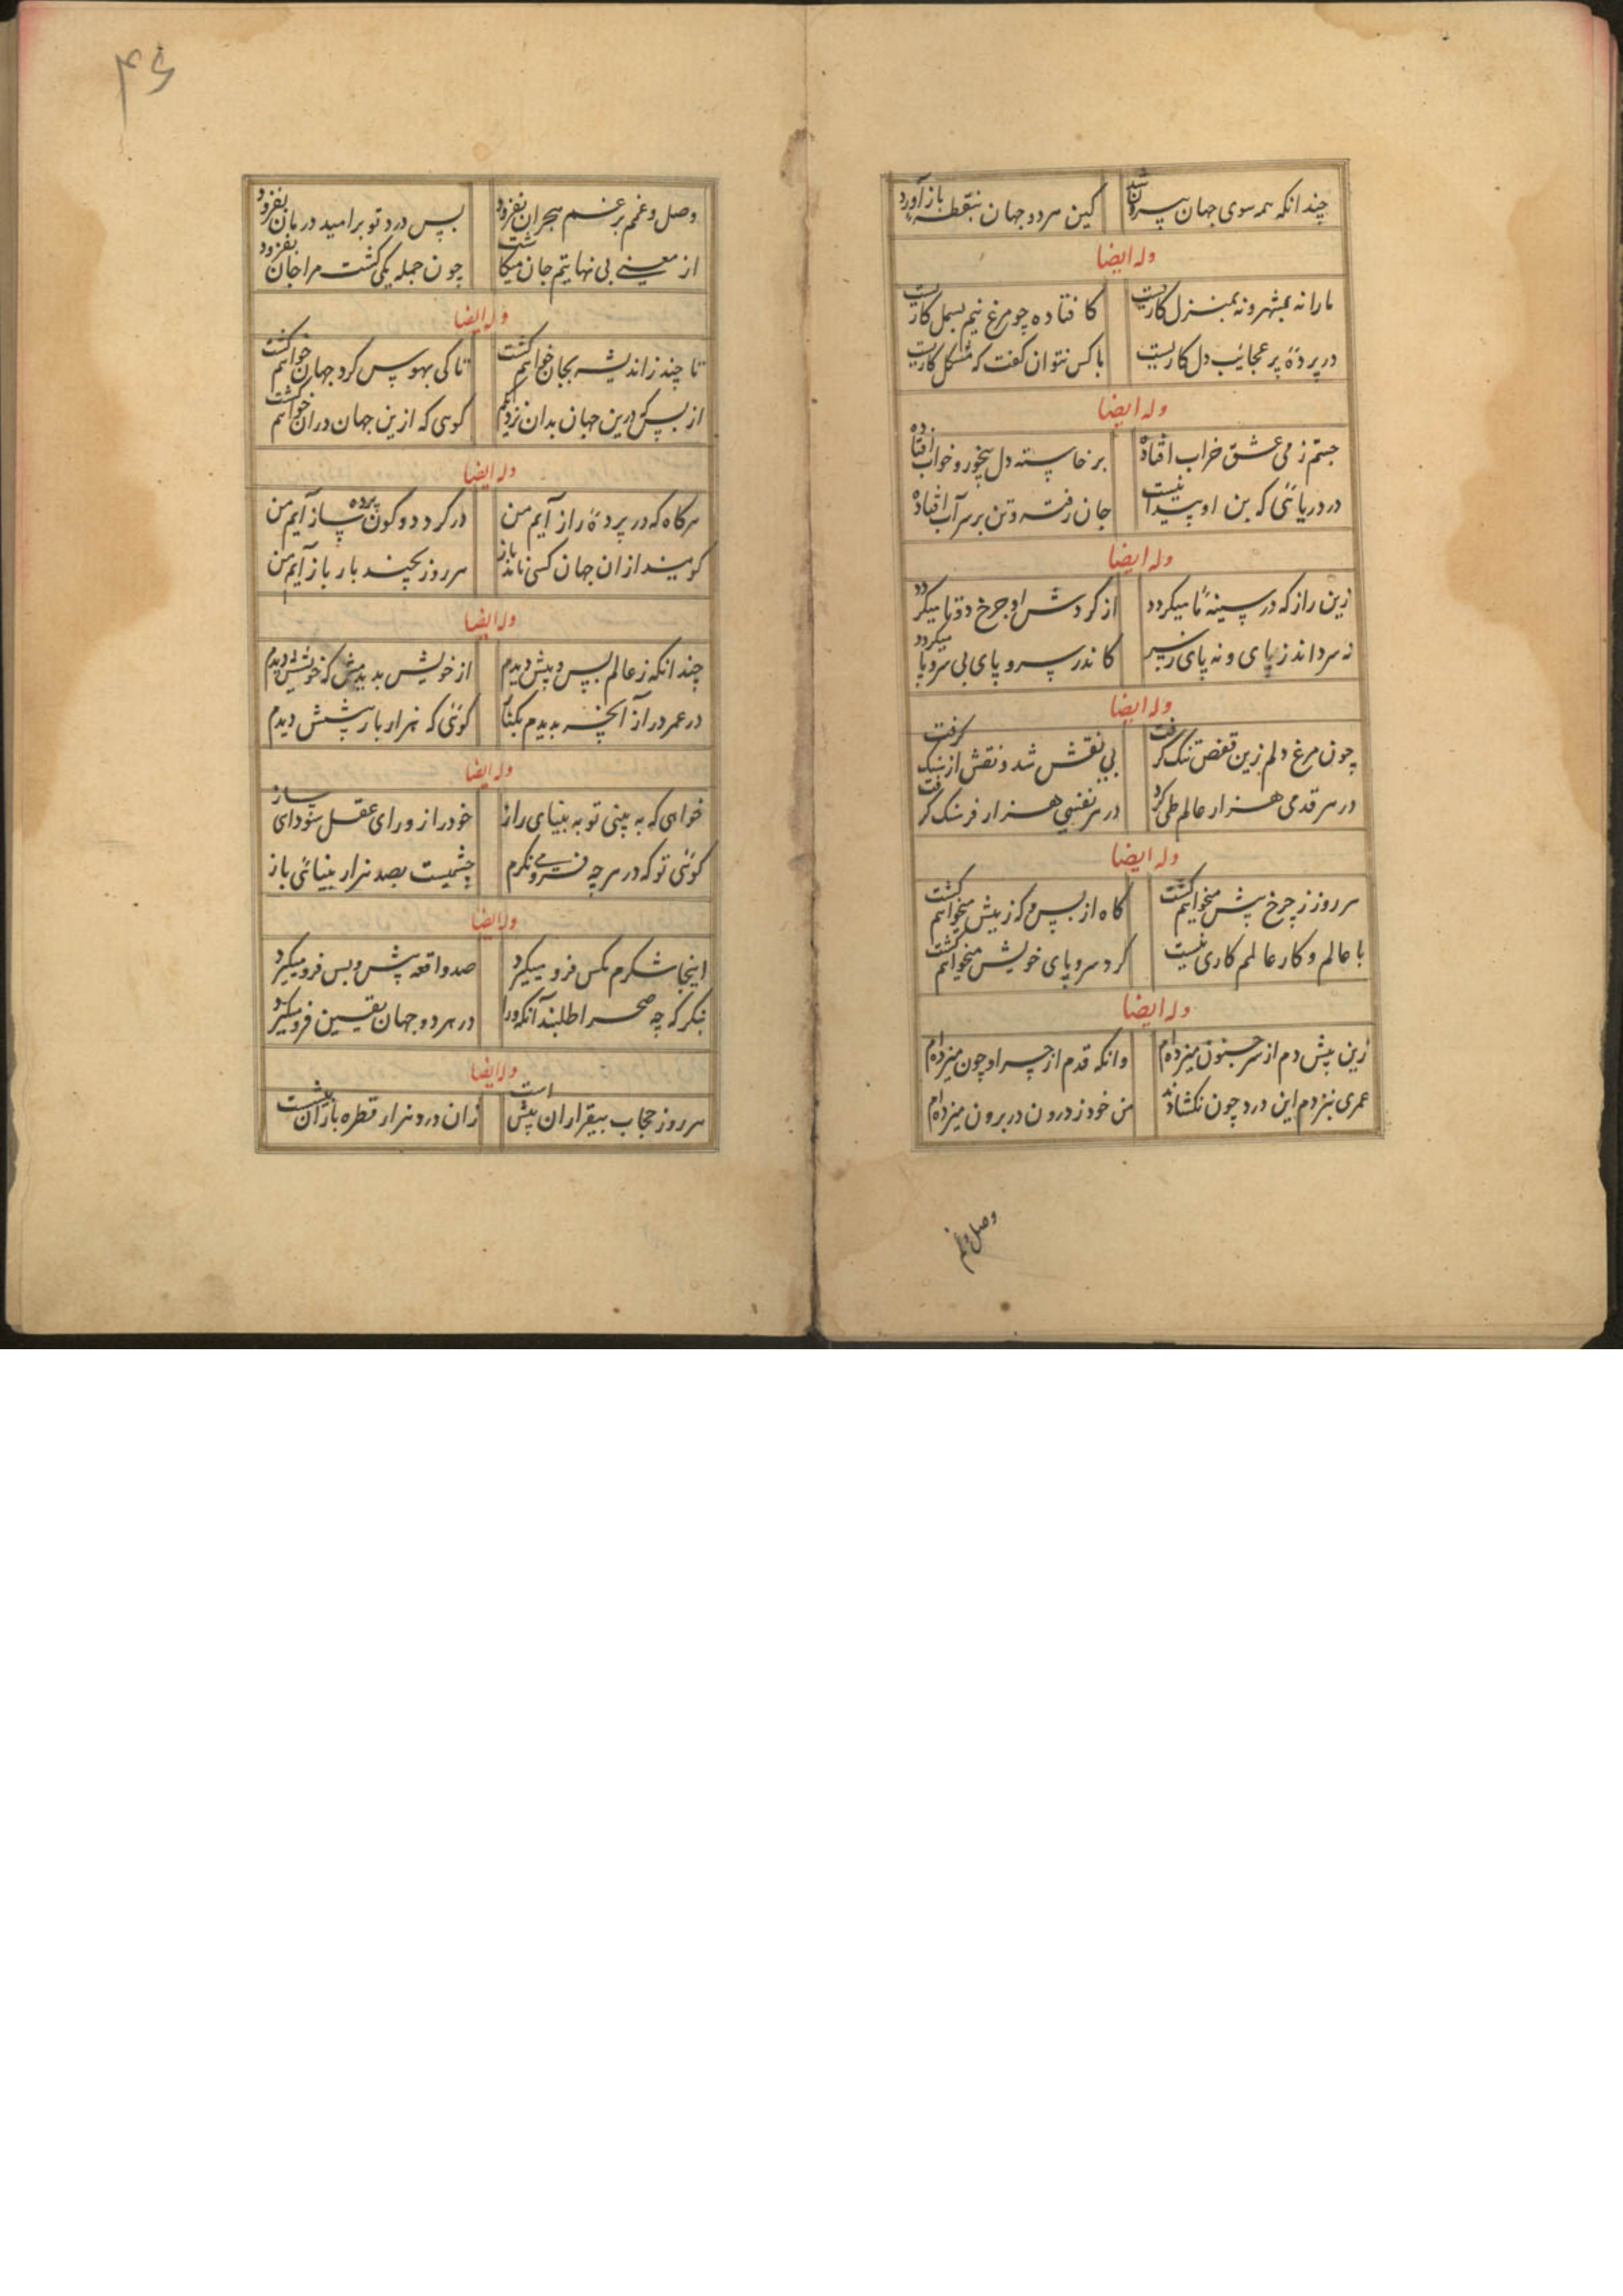 چندانکه همه سوی جهان بیرون شد کین هردو جهان بنقطهٔ باز آورد
وله ایضا
مارا نه بشهر و نه بمنزل کاریست کافتاده چو مرغ نیم بسمل کاریست
در پردهٔ پر عجائب دل کاریست باکس نتوان گفت که مشکل کاریست
وله ایضا
جستم ز می عشق خراب افتاده برخاسته دل بیخور و خواب افتاده
در دریائی که بن او پیدا نیست جان رفته و تن بر سر آب افتاده
وله ایضا
زین راز که در سینهٔ ما میکردد از کردش او چرخ دوتا میکردد
نه سر داند ز پای و نه پای ز سر کاندر سر و پای بی سر و پا میکردد
وله ایضا
چون مرغ دلم زین قفص تنک کرفت بی نقش شد و نقش از سنک کرفت
در هر قدمی هزار عالم طی کرد در هر نفسی هزار فرسنک کرفت
وله ایضا
هر روز ز چرخ پیش میخواهم کشت کاه از پس و که ز پیش میخواهم کشت
با عالم و کار عالمم کاری نیست کرد سر و پای خویش میخواهم کشت
وله ایضا
زین پیش دم از سر جنون میزده‌ام وانکه قدم از چرا و چون میزده‌ام
عمری بزدم این در و چون نکشادند من خود ز درون در برون میزده‌ام
وصل و غم
۴۶
وصل و غمم بر غم هجران بفزود بس درد تو بر امید درمان بفزود
از معنی بی نهایتم جان میکاشت چون جمله یکی کشت مرا جان بفزود
وله ایضا
تا چند ز اندیشه بجان خواهم کشت تا کی بهوس کرد جهان خواهم کشت
از بس که درین جهان بدان نزدیکم کوئی که ازین جهان دران خواهم کشت
وله ایضا
هرکاه که در پردهٔ راز آیم من در کرد دو کون پرده ساز آیم من
کویند ازان جهان کسی نامد باز هر روز بچند بار باز آیم من
وله ایضا
چندانکه ز عالم پس و پیش دیدم از خویش بدیدمش که خویش دیدم
در عمر دراز آنچه بدیدم یکبار کوئی که هزار بار پیشش دیدم
وله ایضا
خواهی که به بینی تو به بینای راز خود را ز ورای عقل سودای ساز
کوئی تو که در هرچه فرو می نکرم چشمیست بصد هزار بینائی باز
وله ایضا
اینجا شکرم مکس فرو میکیرد صد واقعه پیش و پس فرو میکیرد
بنکر که چه صحرا طلبد آنکه ورا در هر دو جهان یقین فرو میکیرد
وله ایضا
هر روز حجاب بیقراران پیش است زان درد هزار قطره باران پیش است